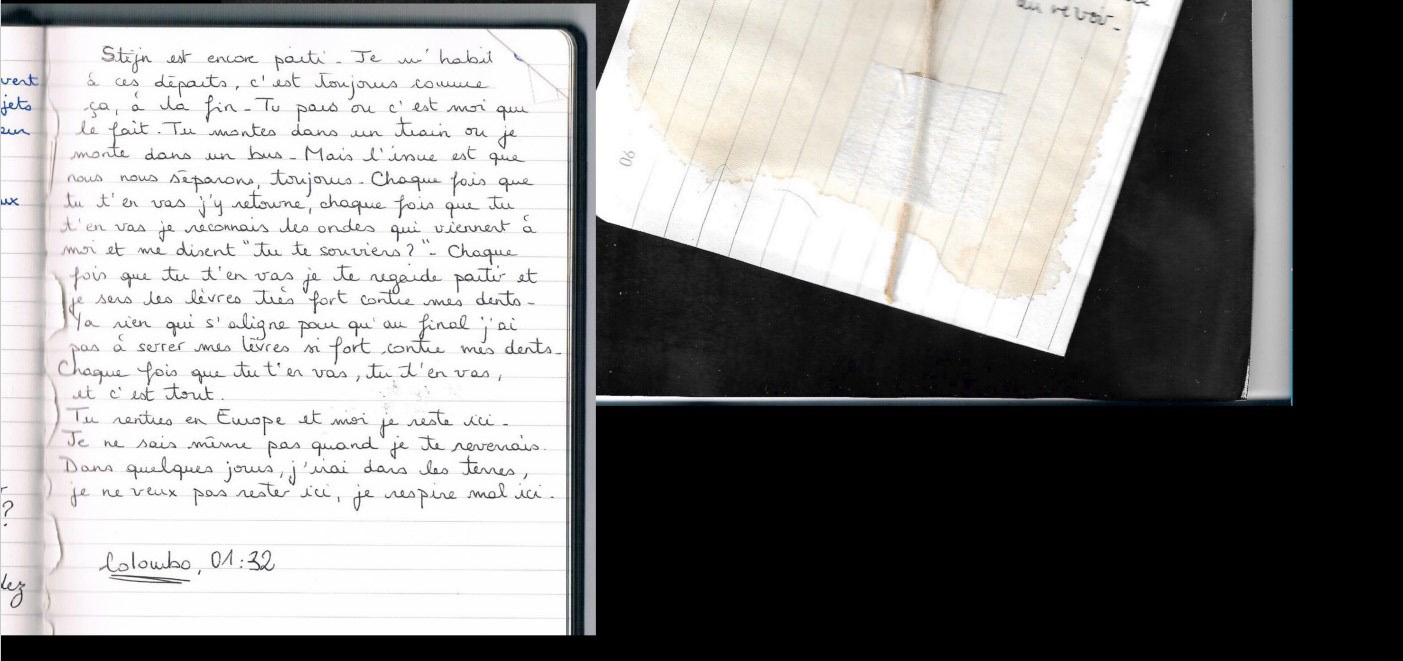 Stijn est encore parti - Je m'habit
à ces départs, c'est toujours comme
ça, à la fin - Tu pars ou c'est moi qui
le fait. Tu montes dans un train ou je
monte dans un bus - Mais l'issue est que
nous nous séparons, toujours - Chaque fois que
tu t'en vas j'y retourne, chaque fois que tu
t'en vas je reconnais les ondes qui viennent à
moi et me disent "tu te souviens?" - Chaque
fois que tu t'en vas je te regarde partir et
je sers les lèvres très fort contre mes dents -
Ya rien qui s'aligne pour qu'au final j'ai
pas à serrer mes lèvres si fort contre mes dents -
Chaque fois que tu t'en vas, tu t'en vas,
et c'est tout.
Tu rentres en Europe et moi je reste ici -
Je ne sais même pas quand je te reverrais.
Dans quelques jours, j'irai dans les terres,
je ne veux pas rester ici, je respire mal ici -
Colombo, 01:32
vert
jets
sur
ux
?
lez
au revoir -
90